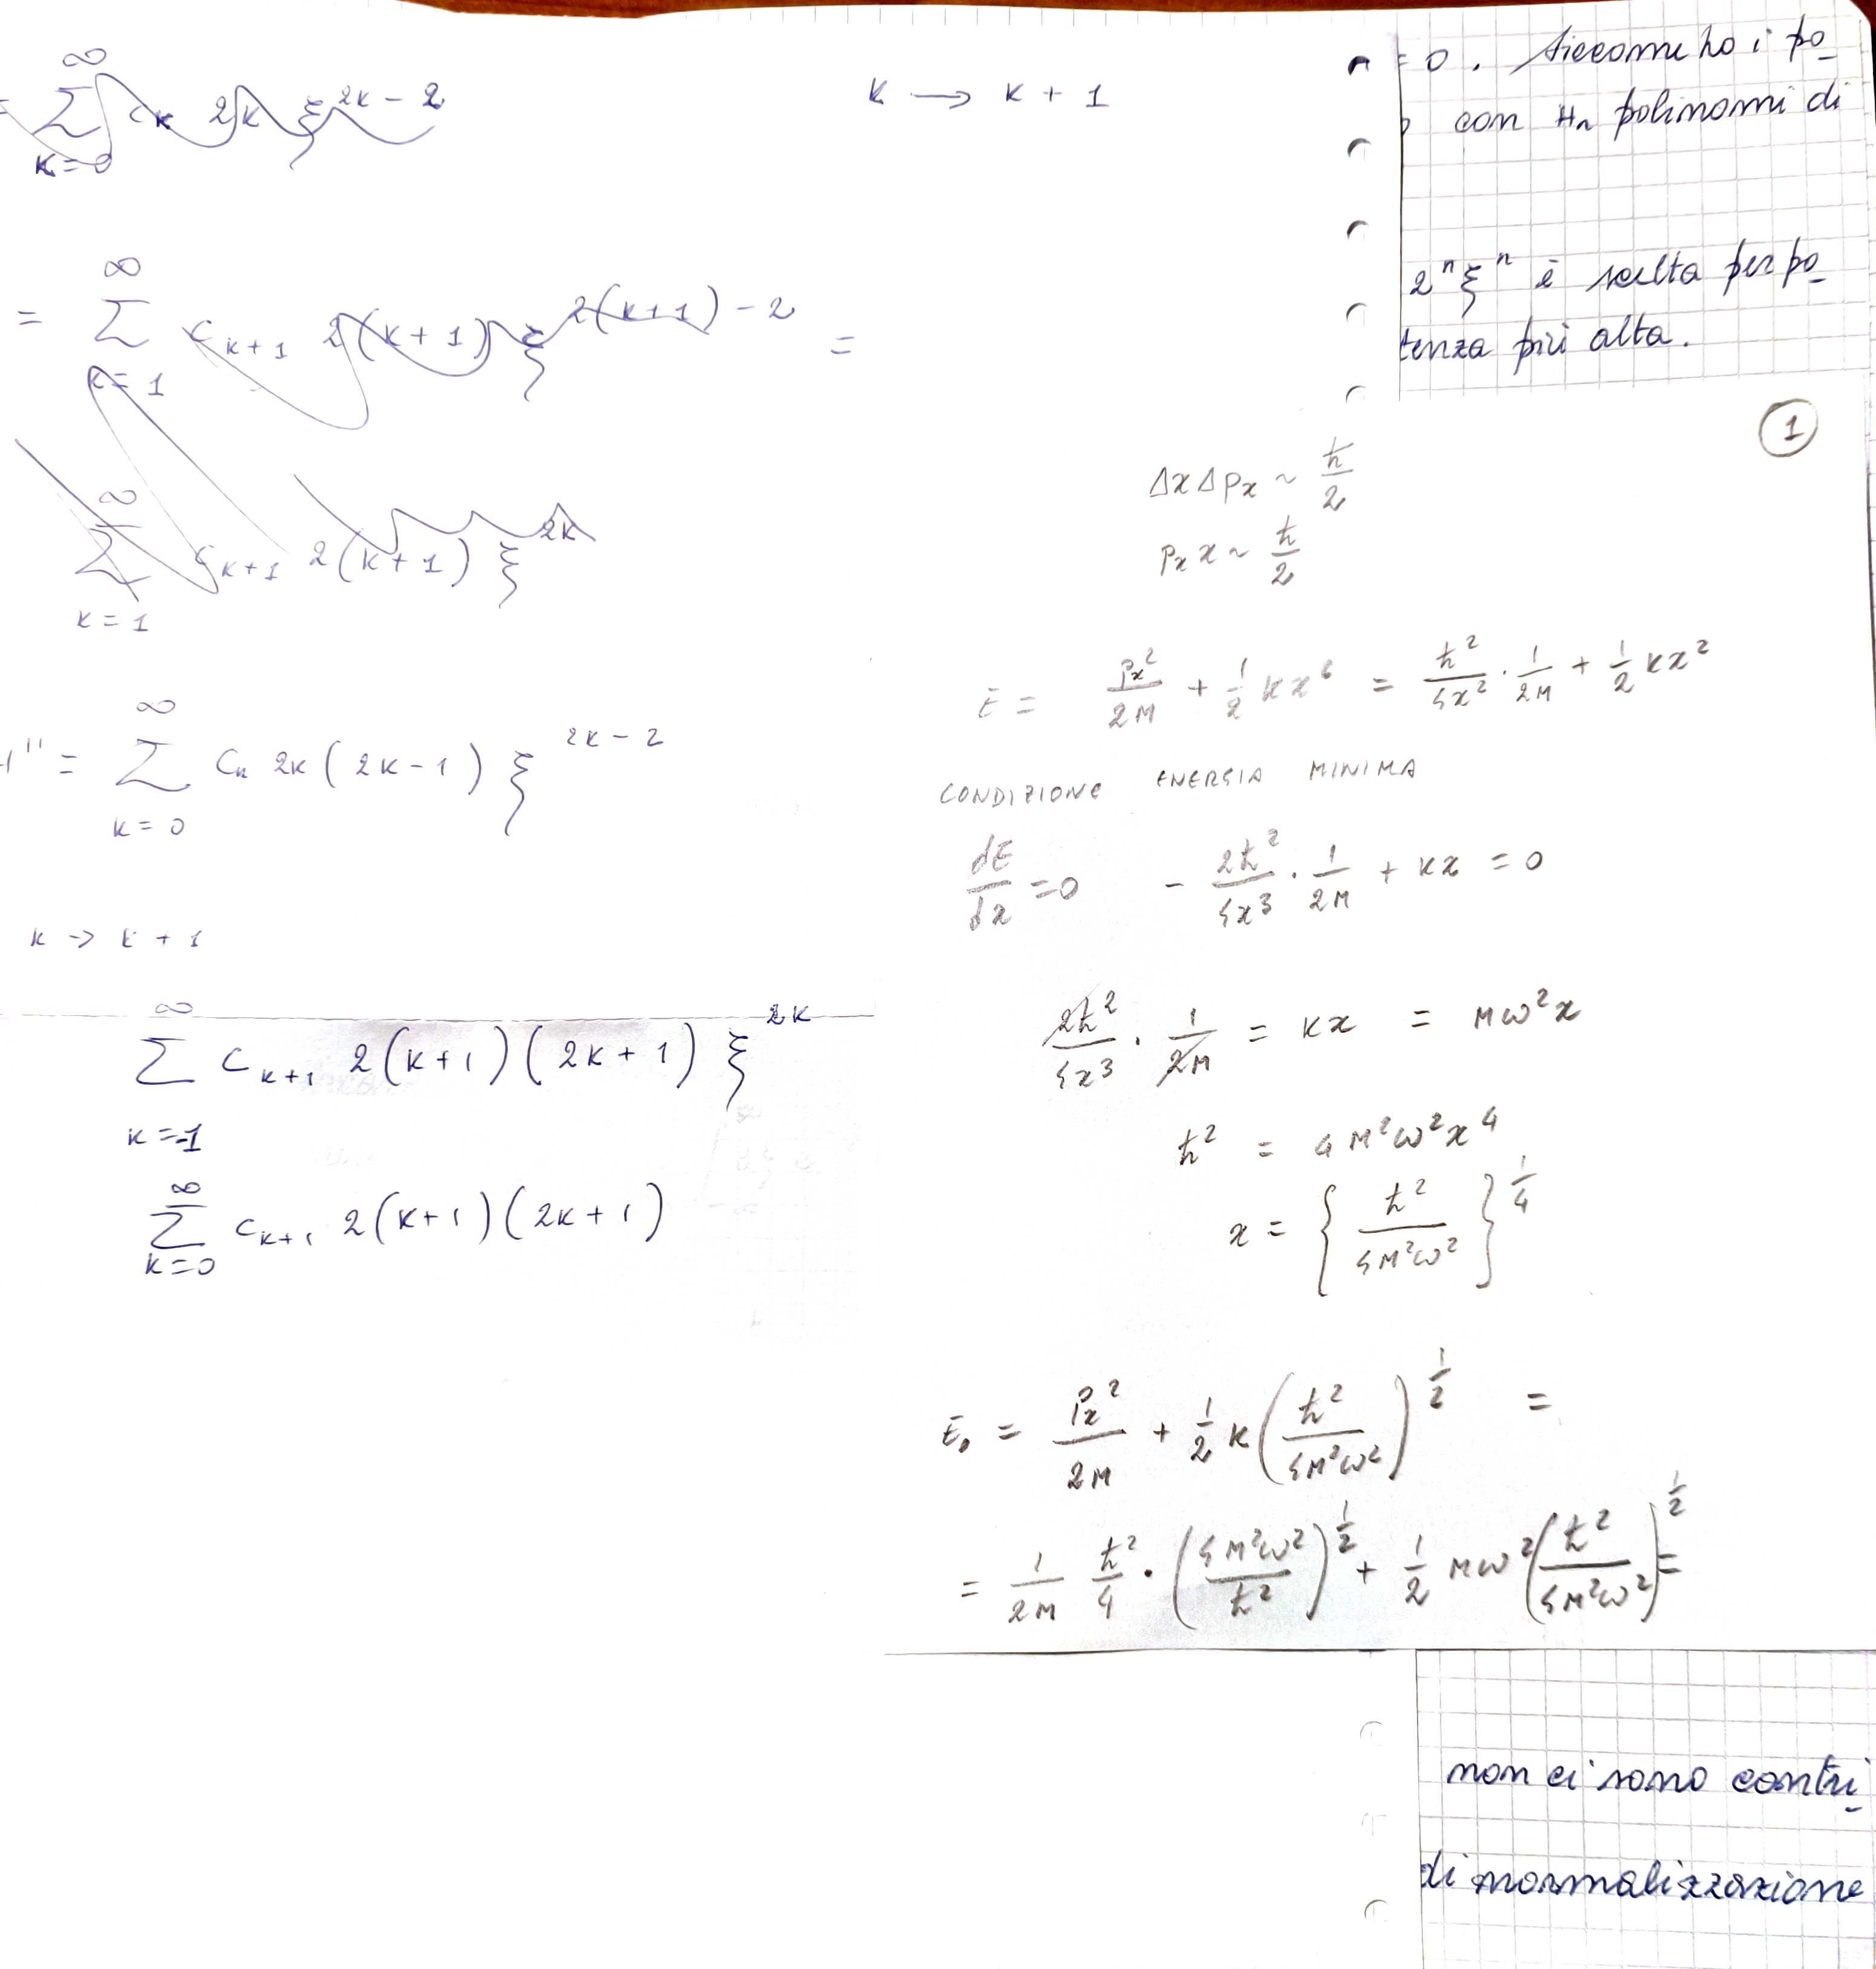 = ∑_{k=0}^{∞} c_k 2k ξ^{2k-2}
k → k + 1
= ∑_{k=1}^{∞} c_{k+1} 2(k+1) ξ^{2(k+1)-2} =
∑_{k=1}^{∞} c_{k+1} 2(k+1) ξ^{2k}
'' = ∑_{k=0}^{∞} c_k 2k (2k-1) ξ^{2k-2}
k → k + 1
∑_{k=-1}^{∞} c_{k+1} 2(k+1)(2k+1) ξ^{2k}
∑_{k=0}^{∞} c_{k+1} 2(k+1)(2k+1)
n = 0. siccome ho i po-
con H_n polinomi di
2^n ξ^n è scelta per po-
tenza più alta.
①
Δx Δp_x ~ ħ/2
p_x x ~ ħ/2
E = p_x^2/2M + 1/2 kx^2 = ħ^2/4x^2 · 1/2M + 1/2 kx^2
CONDIZIONE ENERGIA MINIMA
dE/dx = 0 - 2ħ^2/4x^3 · 1/2M + kx = 0
2ħ^2/4x^3 · 1/2M = kx = Mω^2x
ħ^2 = 4M^2ω^2x^4
x = {ħ^2/4M^2ω^2}^{1/4}
E_0 = p_x^2/2M + 1/2 k (ħ^2/4M^2ω^2)^{1/2} =
= 1/2M ħ^2/4 · (4M^2ω^2/ħ^2)^{1/2} + 1/2 Mω^2 (ħ^2/4M^2ω^2)^{1/2} =
non ci sono contri-
di normalizzazione